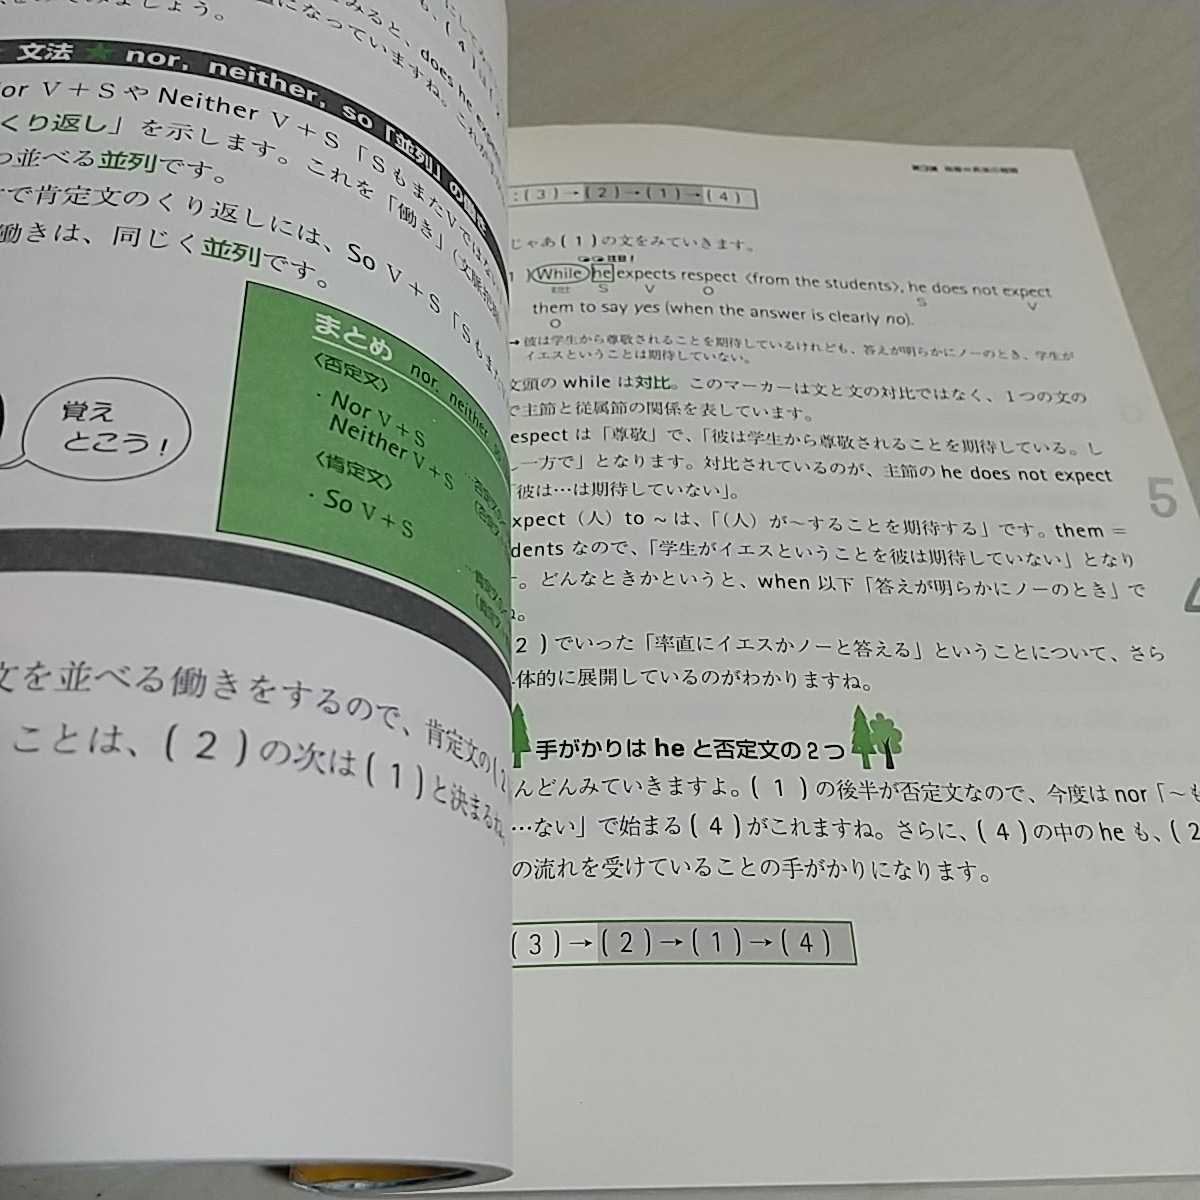 ましょう。
になっていますね。
みると、does he expe
文法 ★ nor, neither, so 「並列」の働き
or V+SやNeither V+S「SもまたVではない
くり返し」を示します。これを「働き」
並べる並列です。
で肯定文のくり返しには、So V+S「Sもまた
働きは、同じく並列です。
まとめ nor, neither, so
〈否定文〉
・Nor V+S
Neither V+S
〈肯定文〉
・So V+S
覚え
とこう!
文を並べる働きをするので、肯定文の(2
ことは、(2)の次は(1)と決まるね。
:(3)→(2)→(1)→(4)
じゃあ(1)の文をみていきます。
注目!
While he expects respect 〈from the students〉, he does not expect
S V O S V
them to say yes (when the answer is clearly no).
O
→彼は学生から尊敬されることを期待しているけれども、答えが明らかにノーのとき、学生が
イエスということは期待していない。
文頭の while は対比。このマーカーは文と文の対比ではなく、1つの文の
で主節と従属節の関係を表しています。
espect は「尊敬」で、「彼は学生から尊敬されることを期待している。し
一方で」となります。対比されているのが、主節の he does not expect
「彼は…は期待していない」。
xpect(人)to ~は、「(人)が~することを期待する」です。them =
dents なので、「学生がイエスということを彼は期待していない」となり
。どんなときかというと、when 以下「答えが明らかにノーのとき」で
。
2)でいった「率直にイエスかノーと答える」ということについて、さら
体的に展開しているのがわかりますね。
手がかりは he と否定文の2つ
んどんみていきますよ。(1)の後半が否定文なので、今度は nor「~も
…ない」で始まる(4)がこれますね。さらに、(4)の中の he も、(2
の流れを受けていることの手がかりになります。
(3)→(2)→(1)→(4)
5
4